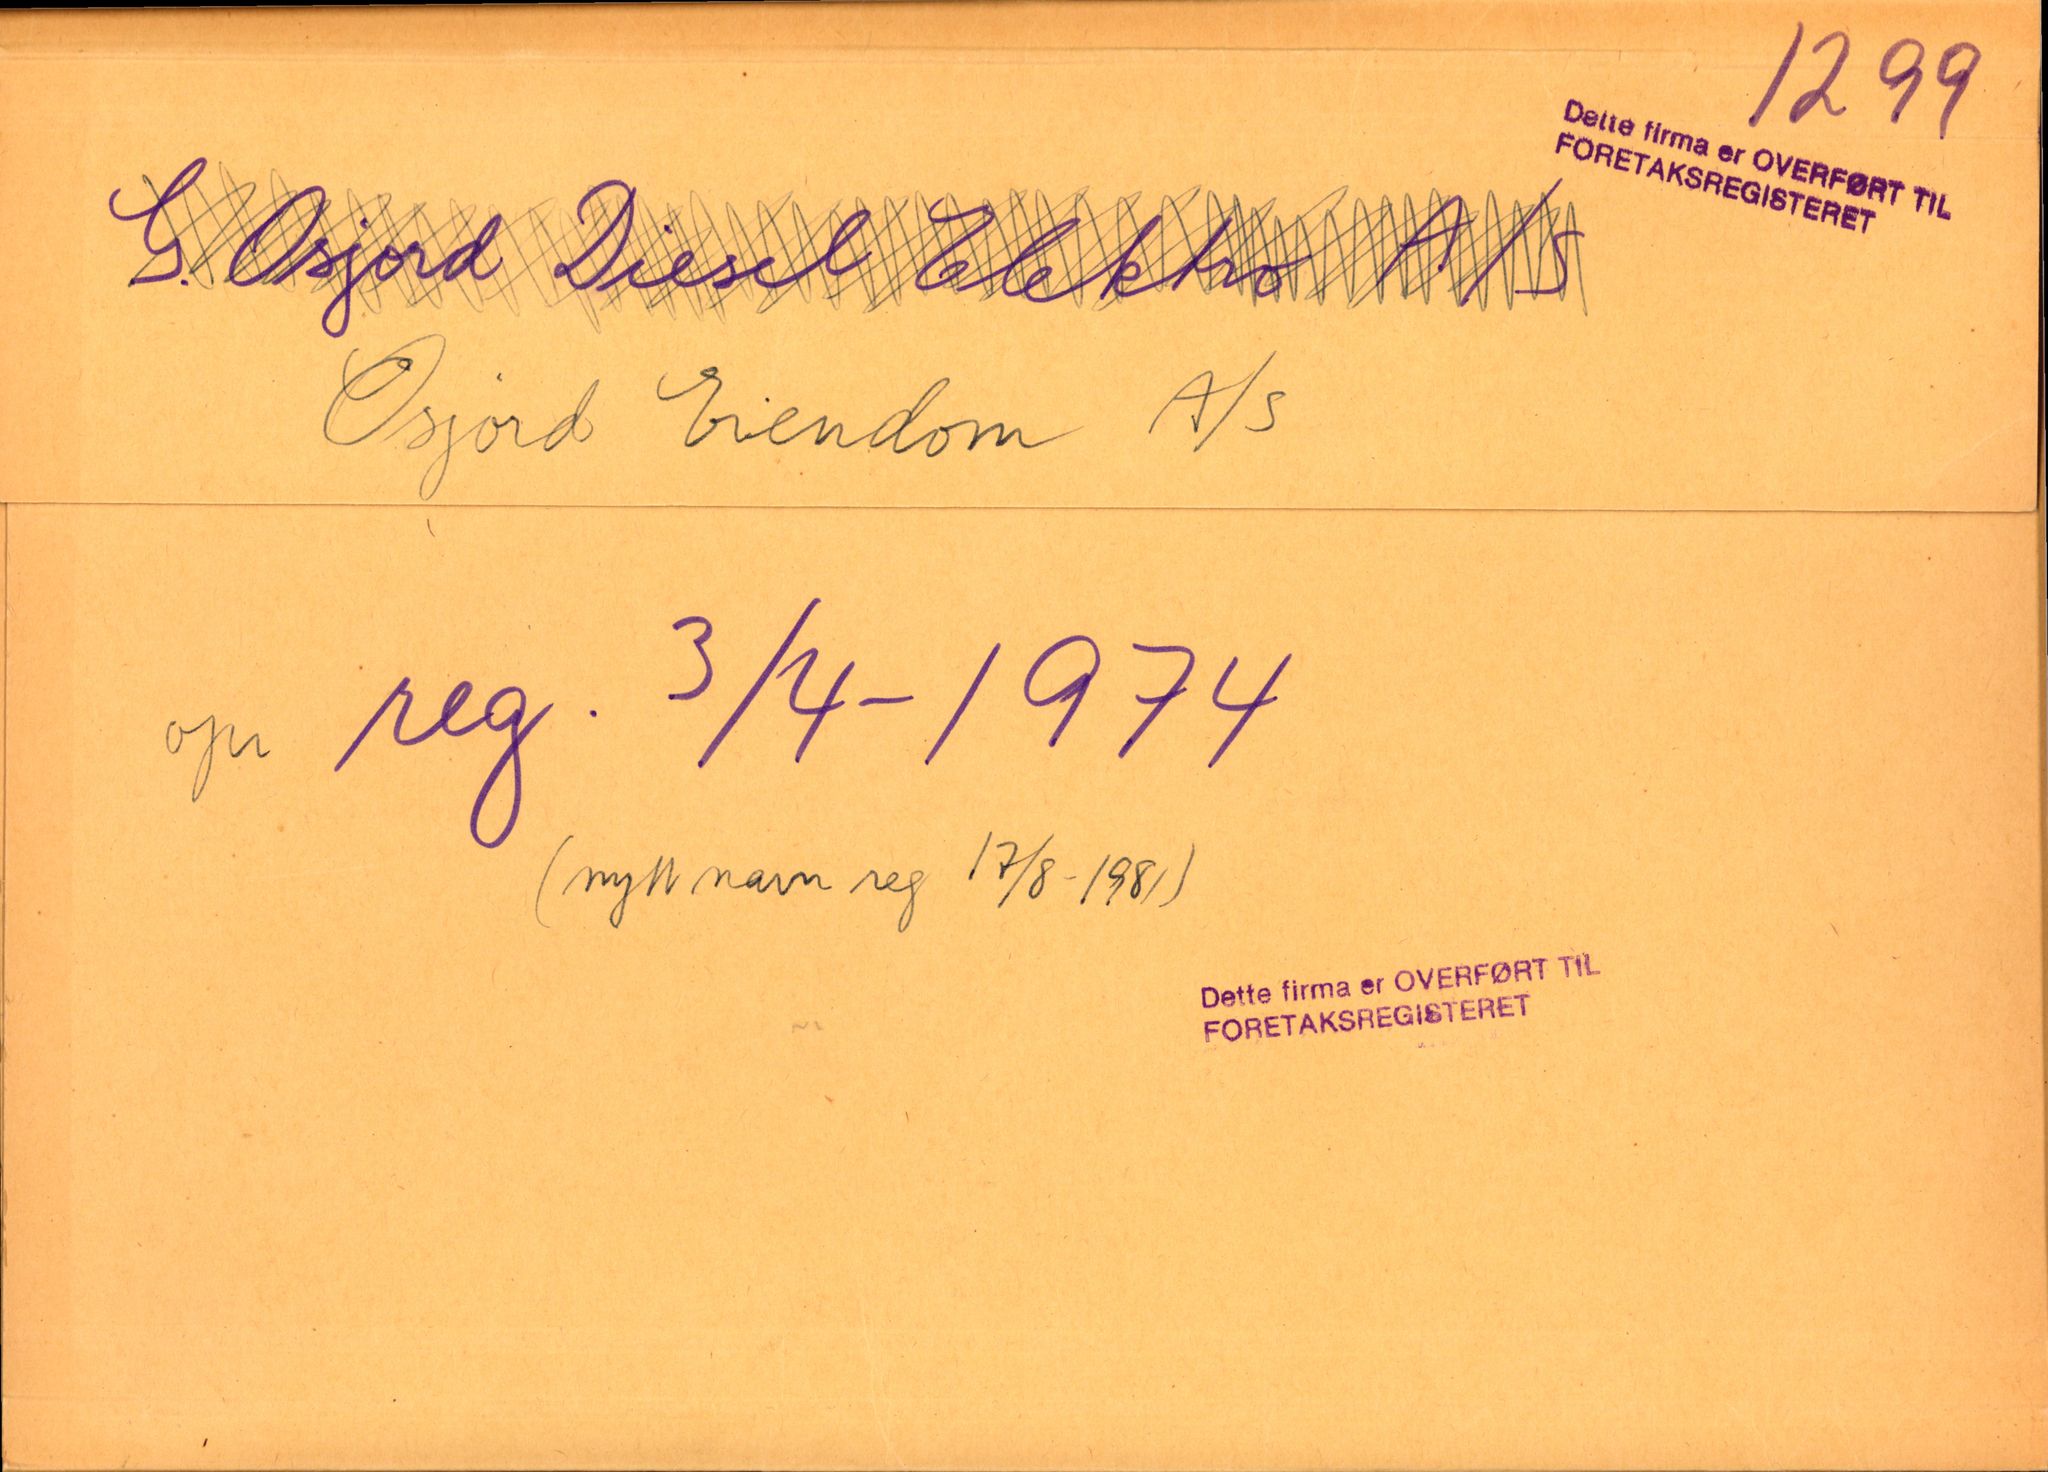 1299
Dette firma er OVERFØRT TIL
FORETAKSREGISTERET
G. Osjord Diesel Elektro A/S
Osjord Eiendom A/S
opr reg. 3/4-1974
(nytt navn reg 17/8-1981)
Dette firma er OVERFØRT TIL
FORETAKSREGISTERET